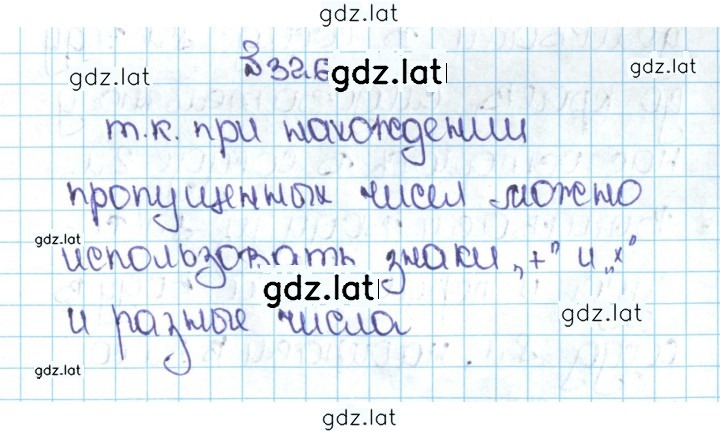 gdz.lat
№326 gdz.lat
gdz.lat gdz.lat
т.к. при нахождении
пропущенных чисел можно
gdz.lat
использовать знаки „+” и „×”
gdz.lat
gdz.lat
и разные числа
gdz.lat
gdz.lat